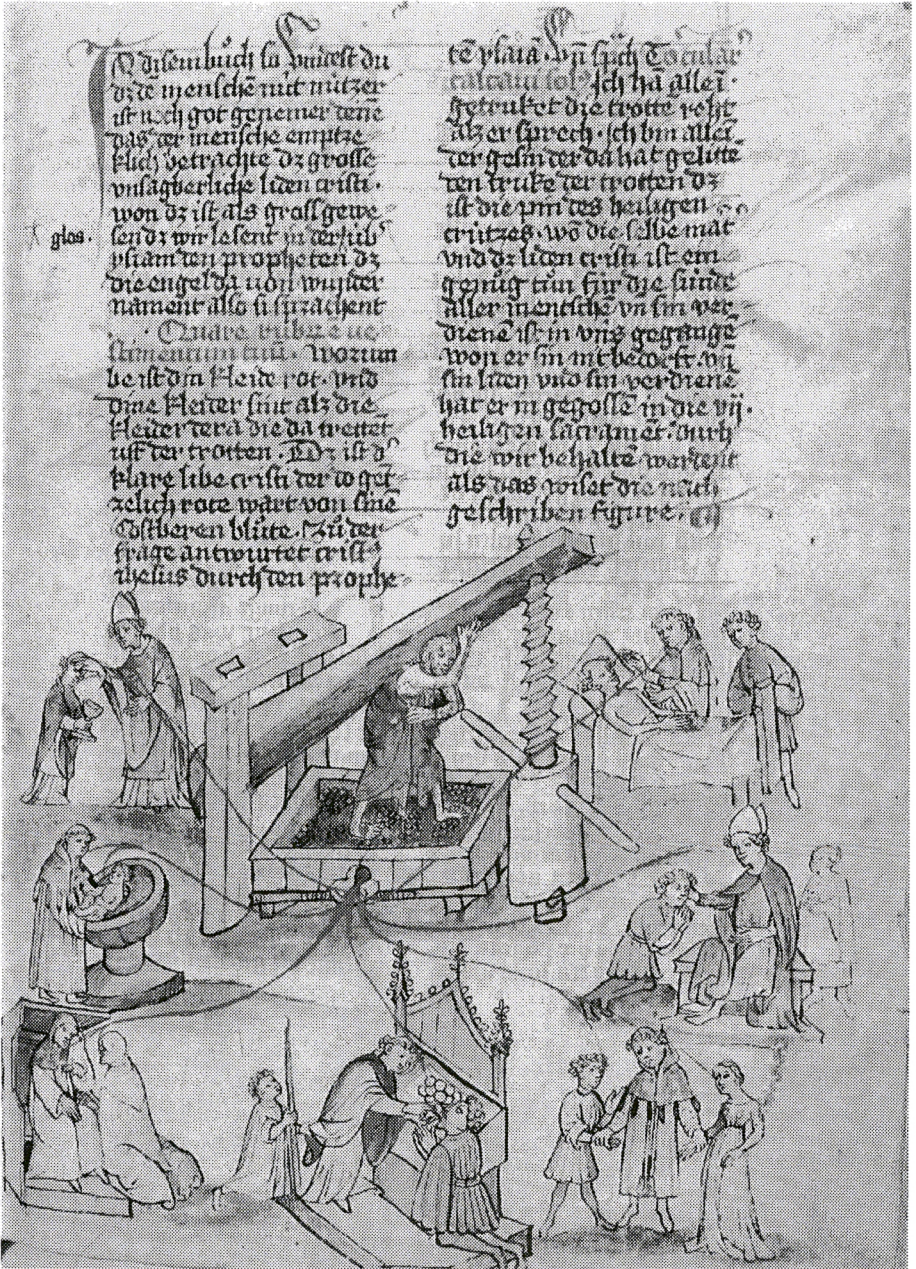 disem buch so vindest du
dz de menschē nüt nützer
ist noch got genemer denē
das der mensche emptze
klich betrachte dz grosse
vnsagberliche liden cristi ·
won dz ist als gross gewe
glos.
send dz wir lesent in der
ysiam den propheten dz
die engel da von wunder
nament also si sprachent
Quare rubrū ē ue
stimentum tuū · worum
be ist din kleide rot · vnd
dine kleider sint alz die
kleider dera die da trettet
uff der trotten · Dz ist dˢ
klare libe cristi der do gē
zelich rote wart von sinē
costberen blůte · Zů der
frage antwurtet crist
ihesus durch den prophe
tē ysaiā · vn̄ spͥch Torcular
calcaui solˢ Ich hā alleī ·
getruket die trotte reht
alz er sprech · Ich bin alleī
der gesin der da hat gelittē
den truke der trotten dz
ist die pin des heiligen
crützes · wō die selbe mat
vnd dz liden cristi ist ein
genůg tůn für die sünde
aller mentschē vn̄ sin ver
dienē ist in vns gegangē
won er sin nit bedorft · vn̄
sin liden vnd sin verdienē
hat er in gegossē in die vij ·
heiligen sacramēt · durh
die wir behaltē werdent
als das wiset die nach
geschriben figure ·